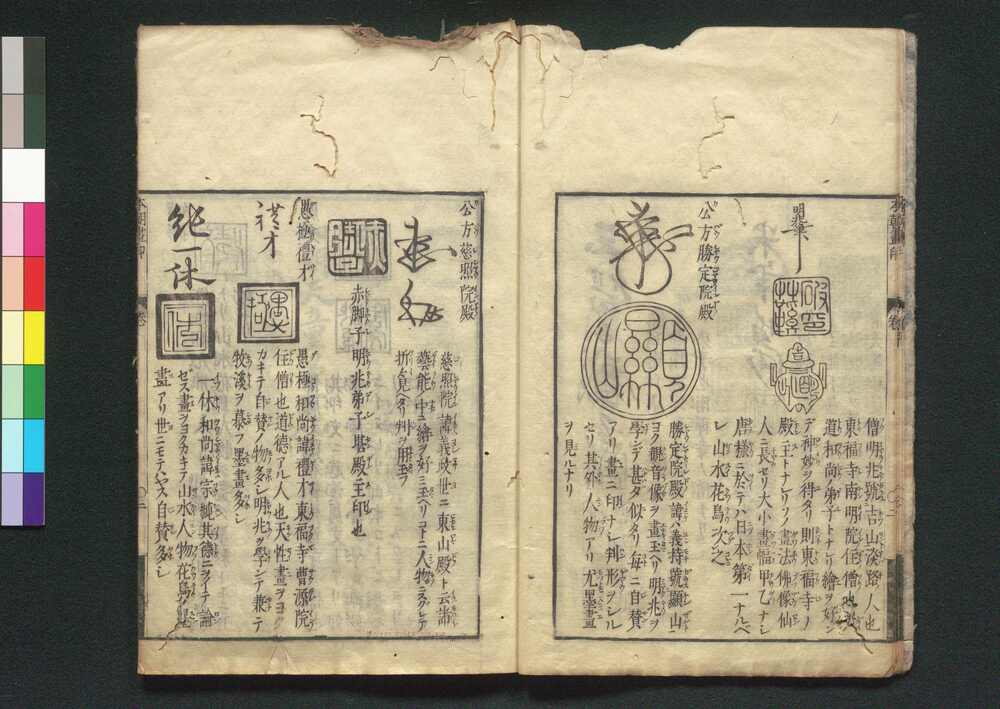 明兆
破草鞋
僧明兆號吉山淡路ノ人也
東福寺南明院住僧
道和尚ノ弟子トナレリ繪ヲ好ン
デ神妙ヲ得タリ則東福寺ノ
殿主トナレリソノ畫法佛像仙
人ニ長セリ大小畫幅甲乙ナシ
唐様ニ於テハ日本第一ナルベ
レ山水花鳥次之
公方勝定院殿
顯山
勝定院殿諱ハ義持號顯山
ヨク觀音像ヲ畫玉ヘリ明兆ヲ
學ンデ甚タ似タリ每ニ自賛
アリ畫ニ印ナシ判形ヲシルセリ
其外人物アリ尤墨畫
ヲ見ルナリ
公方慈照院殿
慈照院諱義政世ニ東山殿ト云諸
藝能中ニ繪ヲ好ミ玉ヘリコトニ人物ニスグレテ
折〻見ヘタリ判ヲ用玉フ
赤脚子明兆弟子塔殿主印也
愚極禮才
禮才
愚極
愚極和尚諱禮才東福寺曹源院
住僧也道德アル人也天性畫ヲヨク
カキテ自賛ノ物多シ明兆ヲ學ンデ兼テ
牧溪ヲ慕フ墨畫多シ
純一休
一休和尚諱宗純其德ニヲイテ論
セス畫ヲヨクカキ玉フ山水人物花鳥ノ墨
畫アリ世ニモテハヤス自賛多シ